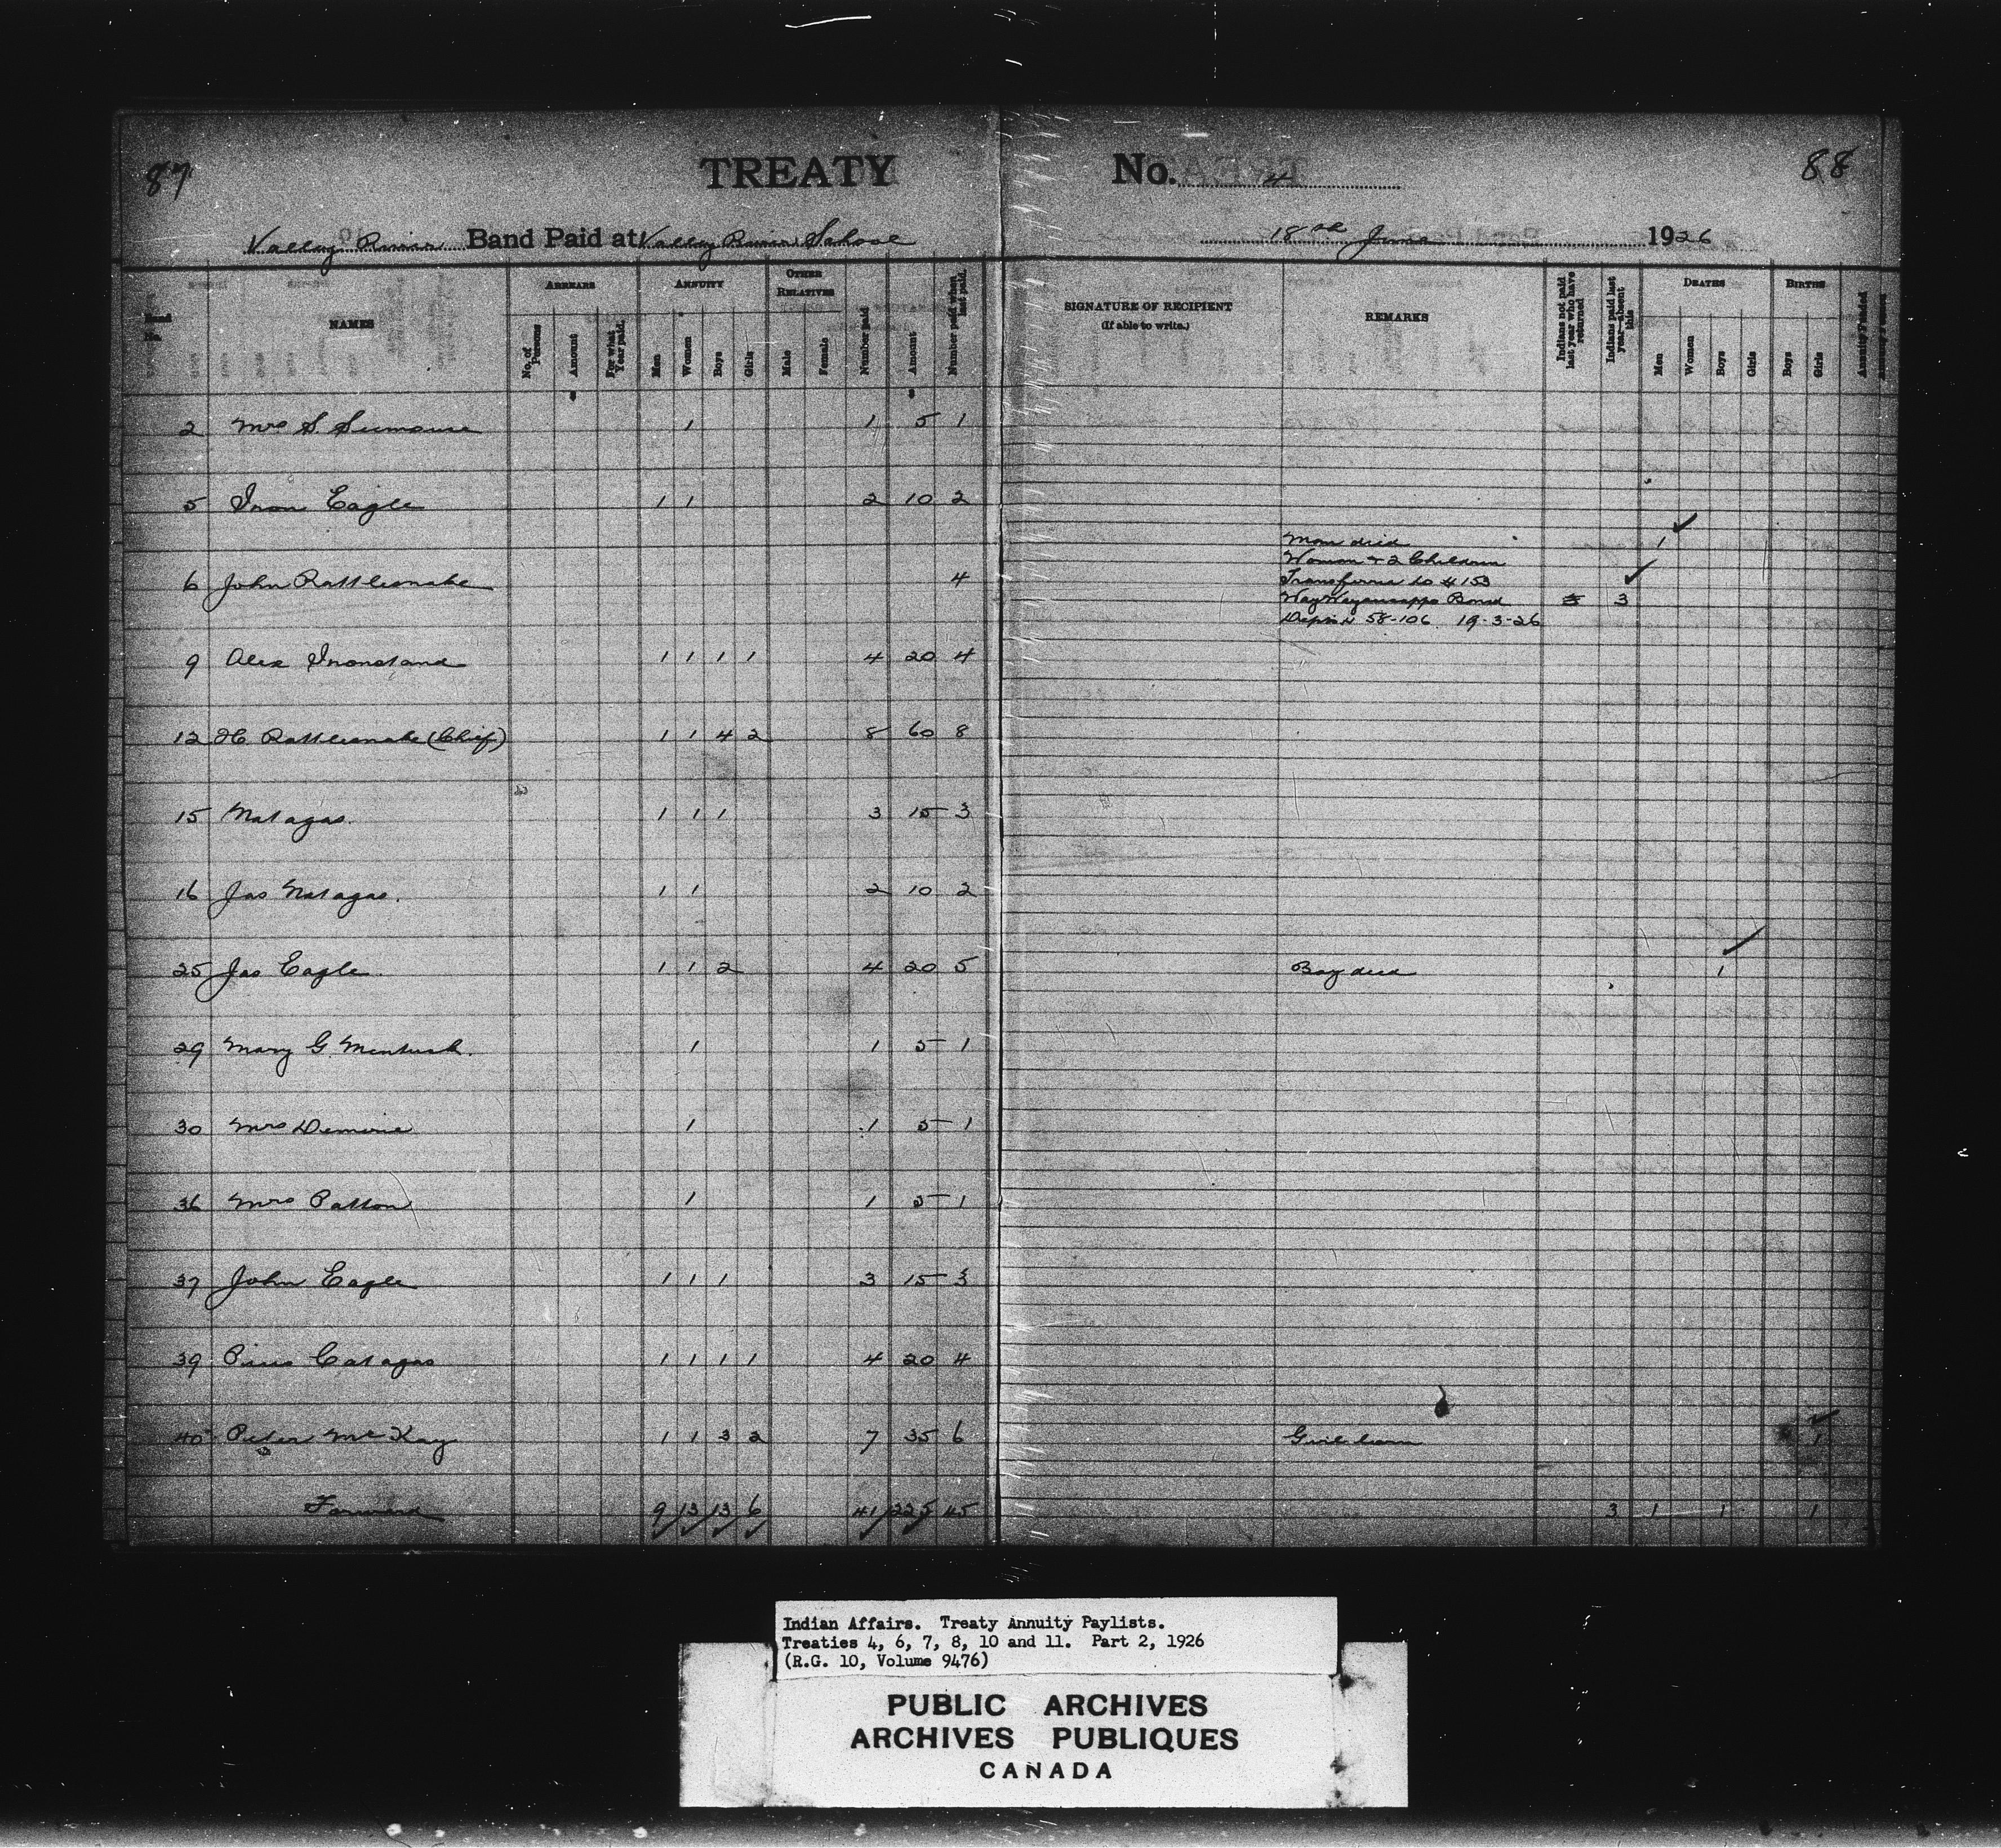 87
TREATY No. 4
88
Valley River Band Paid at Valley River School 18th June 1926
Band No.
NAMES
ARREARS
No. of Persons
Amount
For what Year paid.
ANNUITY
Men
Women
Boys
Girls
OTHER RELATIVES
Male
Female
Number paid
Amount
Number paid when last paid.
SIGNATURE OF RECIPIENT
(If able to write.)
REMARKS
Indians not paid last year who have returned
Indians paid last year—absent this
DEATHS
Men
Women
Boys
Girls
BIRTHS
Boys
Girls
2 Mrs S. 1 1 5 1
5 Iron Eagle 1 1 2 10 2
Man died 1
Woman & 2 Children
6 John Rattlesnake 4 Transferred to # 153
WayWayseecappo Band 3 3
58-106 19-3-26
9 Alex Ironstand 1 1 1 1 4 20 4
12 H. Rattlesnake (Chief) 1 1 4 2 8 60 8
15 Natagas. 1 1 1 3 15 3
16 Jas Natagas. 1 1 2 10 2
25 Jas Eagle. 1 1 2 4 20 5 Boy died 1
29 Mary G. McIntosh. 1 1 5 1
30 Mrs Demerie 1 1 5 1
36 Mrs Patton 1 1 5 1
37 John Eagle 1 1 1 3 15 3
39 Catagas 1 1 1 1 4 20 4
40 Peter McKay 1 1 3 2 7 35 6 Girl born 1
Forward 9 13 13 6 41 225 45 3 1 1 1
Indian Affairs. Treaty Annuity Paylists.
Treaties 4, 6, 7, 8, 10 and 11. Part 2, 1926
(R.G. 10, Volume 9476)
PUBLIC ARCHIVES
ARCHIVES PUBLIQUES
CANADA